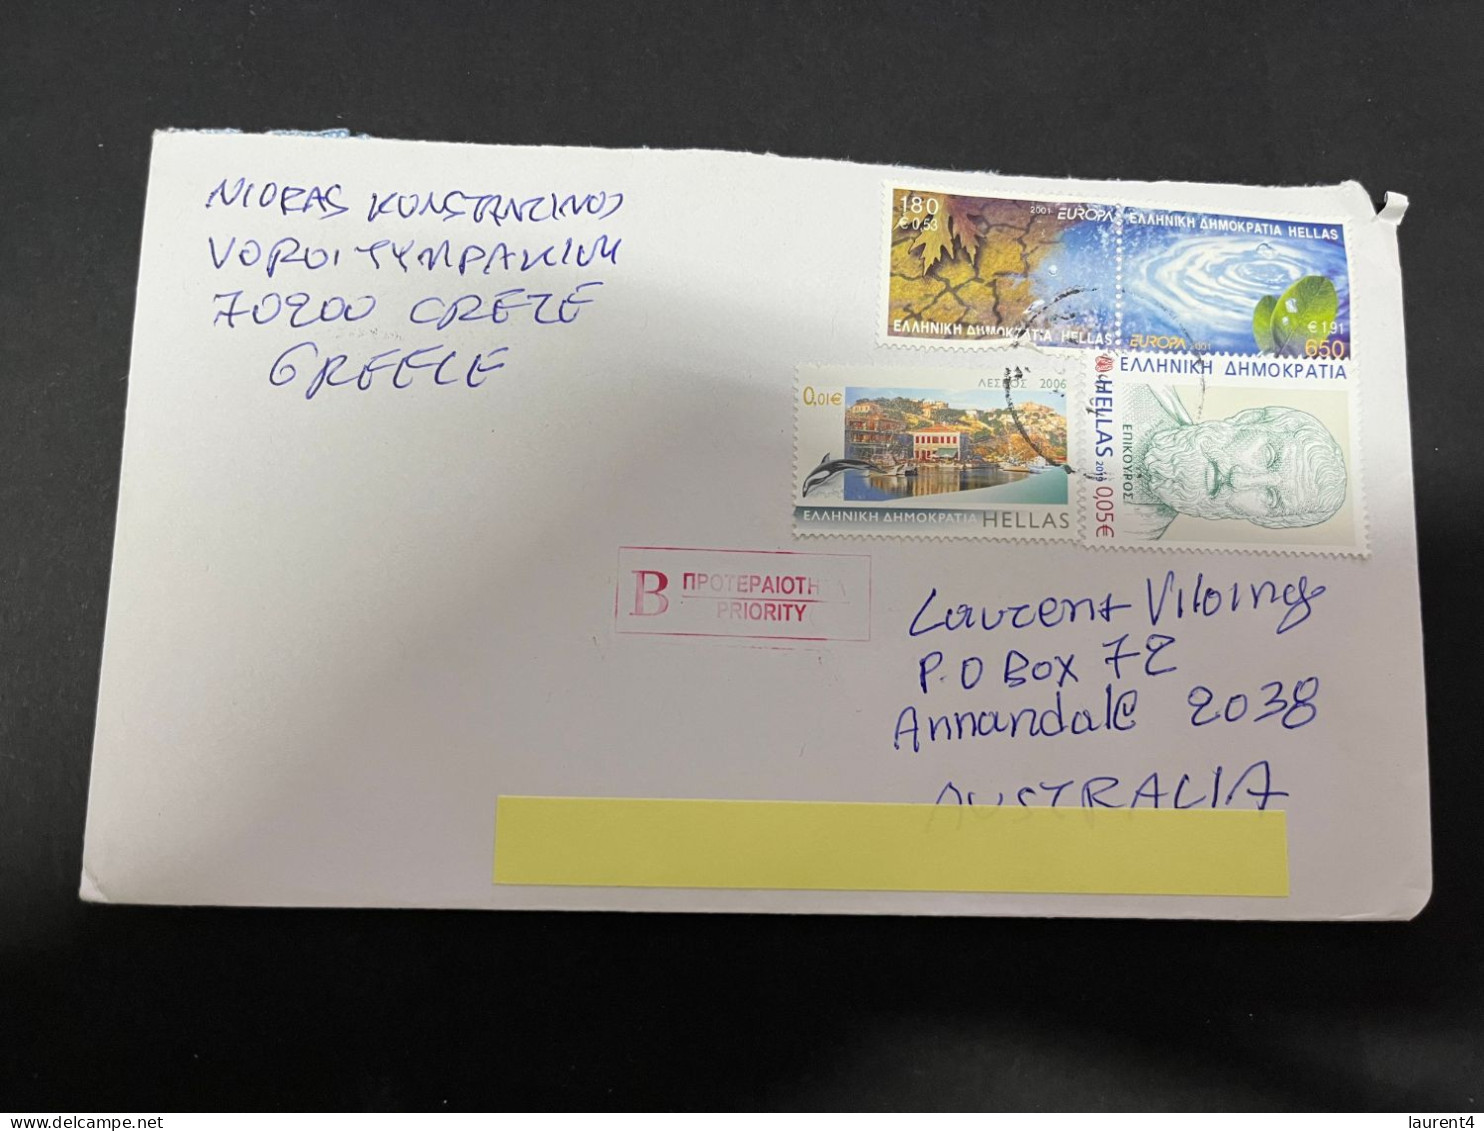 NIORAS KONSTANTINOS
VOROI TYMPAKIUM
70200 CRETE
GREECE
180
€ 0,53
2001 EUROPA
ΕΛΛΗΝΙΚΗ ΔΗΜΟΚΡΑΤΙΑ HELLAS
ΕΛΛΗΝΙΚΗ ΔΗΜΟΚΡΑΤΙΑ HELLAS
€ 1,91
EUROPA 2001 650
0,01€
ΛΕΣΒΟΣ 2006
ΕΛΛΗΝΙΚΗ ΔΗΜΟΚΡΑΤΙΑ HELLAS
ΕΛΛΗΝΙΚΗ ΔΗΜΟΚΡΑΤΙΑ
HELLAS 2019 0,05€
ΕΠΙΚΟΥΡΟΣ
B ΠΡΟΤΕΡΑΙΟΤΗΤΑ
PRIORITY
Laurent
P.O Box 72
Annandale 2038
AUSTRALIA
laurent4